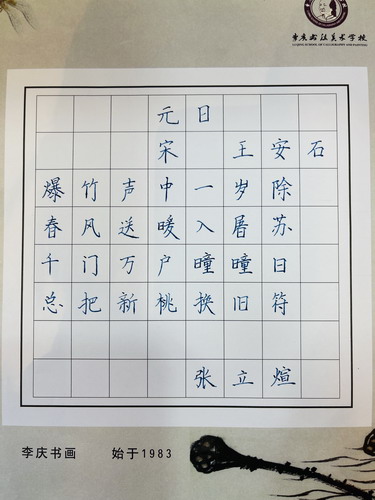 李庆书法美术学校
LIQING SCHOOL OF CALLIGRAPHY AND PAINTING
元日
宋 王安石
爆竹声中一岁除
春风送暖入屠苏
千门万户曈曈日
总把新桃换旧符
张立煊
李庆书画 始于1983